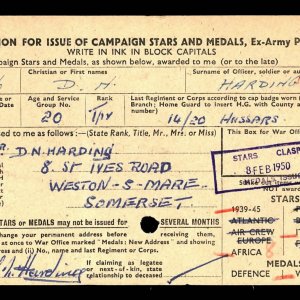 ION FOR ISSUE OF CAMPAIGN STARS AND MEDALS, Ex-Army P
WRITE IN INK IN BLOCK CAPITALS
paign Stars and Medals, as shown below, awarded to me (or to the late)
Christian or First names Surname of Officer, soldier or
D. H. HARDING
No. Age and Service Group No. Rank Last Regiment or Corps according to cap badge worn
Branch: Home Guard to insert H.G. with County and
20 Tpr 14/20 HUSSARS
ued to me as follows:—(State Rank, Title, Mr., Mrs. or Miss) This Box for War Offi
R. D.N. HARDING
8. ST IVES ROAD
WESTON-S-MARE
SOMERSET
STARS CLASP
8 FEB 1950
STARS or MEDALS may not be issued for SEVERAL MONTHS
change of address should be notified by postcard
once to War Office marked "Medals: New Address" and showing
(ii) No., name and last Regiment or Corps.
Harding
If claiming as legatee
or next-of-kin, state
relationship to deceased
1939-45
ATLANTIC
AIR CREW
EUROPE
AFRICA
DEFENCE
MEDALS